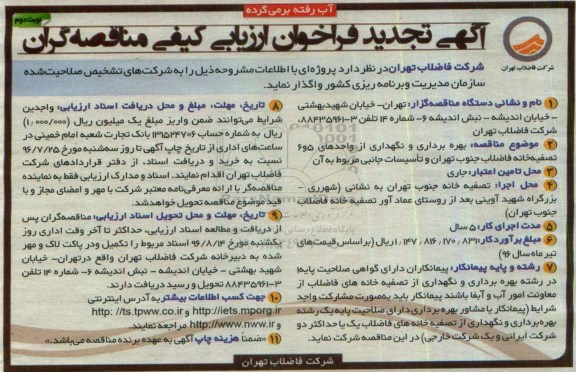 آب رفته برمی‌گرده
نوبت دوم
آگهی تجدید فراخوان ارزیابی کیفی مناقصه‌گران
شرکت فاضلاب تهران
شرکت فاضلاب تهران در نظر دارد پروژه‌ای با اطلاعات مشروحه ذیل را به شرکت‌های تشخیص صلاحیت شده
سازمان مدیریت و برنامه ریزی کشور واگذار نماید.
۱ نام و نشانی دستگاه مناقصه‌گزار: تهران- خیابان شهید بهشتی
- خیابان اندیشه - نبش اندیشه ۶- شماره ۱۴ تلفن ۳-۸۸۴۳۵۹۶۱
شرکت فاضلاب تهران
۲ موضوع مناقصه: بهره برداری و نگهداری از واحدهای ۵و۶
تصفیه‌خانه فاضلاب جنوب تهران و تأسیسات جانبی مربوط به آن
۳ محل تامین اعتبار: جاری
۴ محل اجرا: تصفیه خانه جنوب تهران به نشانی (شهرری -
بزرگراه شهید آوینی بعد از روستای عماد آور تصفیه خانه فاضلاب
جنوب تهران)
۵ مدت اجرای کار: ۵ سال
۶ مبلغ برآورد کار: ۱۴۷,۸۱۶,۱۷۰,۸۳۱ ریال (براساس قیمت‌های
تیر ماه سال ۹۶)
۷ رشته و پایه پیمانکار: پیمانکاران دارای گواهی صلاحیت پایه۱
در رشته بهره برداری و نگهداری از تصفیه خانه های فاضلاب از
معاونت امور آب و آبفا باشند پیمانکار باید به‌صورت مشارکت واجد
شرایط (پیمانکار یا مشاور بهره برداری دارای صلاحیت پایه یک رشته
بهره‌برداری و نگهداری از تصفیه خانه های فاضلاب یک یا حداکثر دو
شرکت ایرانی و یک شرکت خارجی) در این مناقصه شرکت نماید.
۸ تاریخ، مهلت، مبلغ و محل دریافت اسناد ارزیابی: واجدین
شرایط می‌توانند ضمن واریز مبلغ یک میلیون ریال (۱,۰۰۰,۰۰۰)
ریال به شماره حساب ۱۳۵۲۴۷۰۶ بانک تجارت شعبه امام خمینی در
ساعت‌های اداری از تاریخ چاپ آگهی تا روز سه‌شنبه مورخ ۹۶/۷/۲۵
نسبت به خرید و دریافت اسناد، از دفتر قراردادهای شرکت
فاضلاب تهران اقدام نمایند. اسناد و مدارک ارزیابی فقط به نماینده
مناقصه‌گر با ارائه معرفی‌نامه معتبر شرکت با مهر و امضای مجاز و با
قید موضوع مناقصه تحویل خواهد شد.
۹ تاریخ، مهلت و محل تحویل اسناد ارزیابی: مناقصه‌گران پس
از دریافت و مطالعه اسناد ارزیابی، حداکثر تا آخر وقت اداری روز
یکشنبه مورخ ۹۶/۸/۱۴ اسناد مربوط را تکمیل ودر پاکت لاک و مهر
شده به دبیرخانه شرکت فاضلاب تهران واقع در تهران- خیابان
شهید بهشتی - خیابان اندیشه - نبش اندیشه ۶- شماره ۱۴ تلفن
۳-۸۸۴۳۵۹۶۱ تحویل و رسید دریافت دارند.
۱۰ جهت کسب اطلاعات بیشتر به آدرس اینترنتی
http://iets.mporg.ir و http://ts.tpww.co.ir
و http://www.nww.ir مراجعه نمایند.
۱۱ «ضمنا هزینه چاپ آگهی به عهده برنده مناقصه می‌باشد.»
شرکت فاضلاب تهران